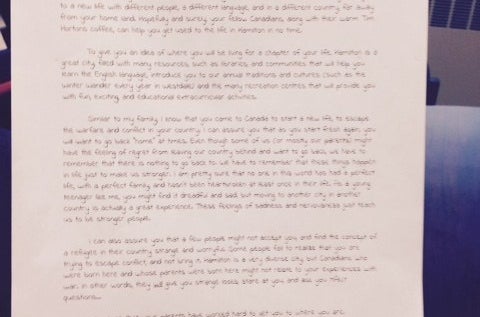 to a new life with different people, a different language, and in a different country far away
from your home land. Hopefully and surely, your fellow Canadians, along with their warm Tim
Hortons coffee, can help you get used to the life in Hamilton in no time.
To give you an idea of where you will be living for a chapter of your life, Hamilton is a
great city, filled with many resources, such as libraries, and communities that will help you
learn the English language, introduce you to our annual traditions and cultures (such as the
winter wander every year in Westdale) and the many recreation centres that will provide you
with fun, exciting, and educational extracurricular activities.
Similar to my family, I know that you come to Canada to start a new life, to escape
the warfare and conflict in your country. I can assure you that do you start fresh again, you
will want to go back "home" at times. Even though some of us (or mostly our parents) might
have the feeling of regret from leaving our country behind and want to go back, we have to
remember that there is nothing to go back to. We have to remember that these things happen
in life just to make us stronger. I am pretty sure that no one in this world has had a perfect
life, with a perfect family, and hasn't been heartbroken at least once in their life. As a young
teenager like me, you might find it dreadful and sad, but moving to another city in another
country is actually a great experience. These feelings of sadness and nervousness just teach
us to be stronger people.
I can also assure you that a few people might not accept you, and find the concept of
a refugee in their country strange and worryful. Some people fail to realize that you are
trying to escape conflict, and not bring it. Hamilton is a very diverse city, but Canadians who
were born here and whose parents were born here might not relate to your experiences with
war. In other words, they will give you strange looks, stare at you, and ask you
questions...
parents have worked hard to get you to where you are